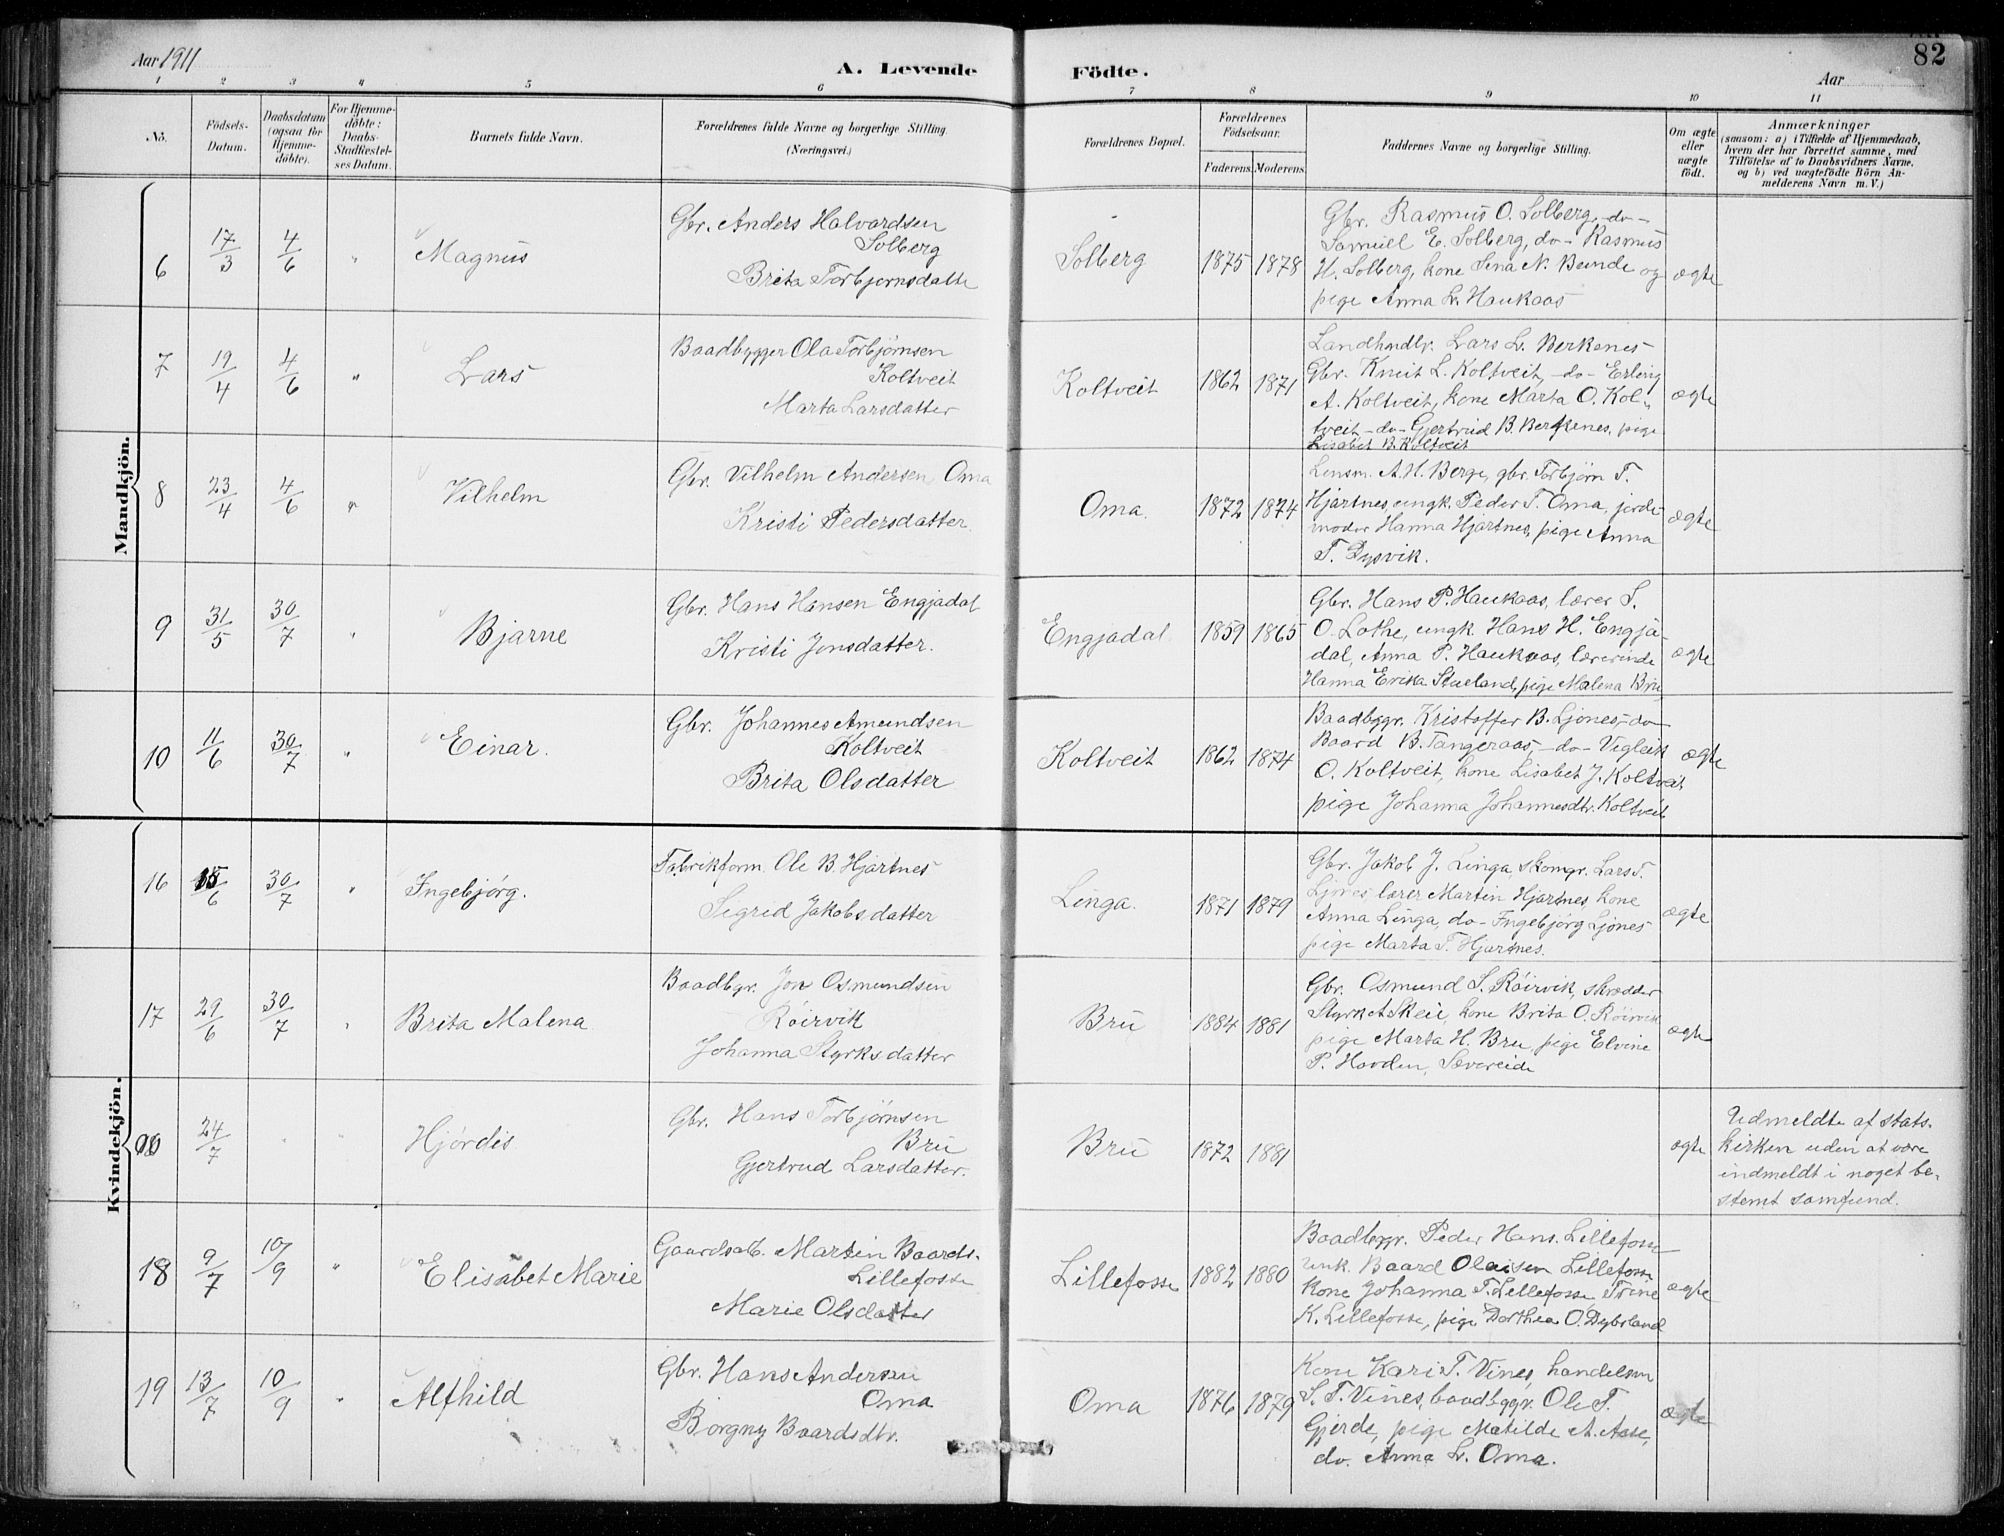 Aar 1911
A. Levende Födte.
Aar
82
1 2 3 4 5 6 7 8 9 10 11
No.
Födsels-
Datum.
Daabsdatum
(ogsaa for
Hjemme-
döbte).
For Hjemme-
döbte:
Daabs-
Stadfæstel-
ses Datum.
Barnets fulde Navn.
Forældrenes fulde Navne og borgerlige Stilling.
(Næringsvei.)
Forældrenes Bopæl.
Forældrenes
Födselsaar.
Faderens. Moderens.
Faddernes Navne og borgerlige Stilling.
Om ægte
eller
uægte
födt.
Anmærkninger
(saasom: a) i Tilfælde af Hjemmedaab,
hvem der har forrettet samme, med
Tilföielse af to Daabsvidners Navne,
og b) ved uægtefödte Börn An-
melderens Navn m. V.)
Mandkjön.
6 17/3 4/6 " Magnus
Gbr. Anders Halvardsen
Solberg
Brita Torbjørnsdatte
Solberg 1875 1878
Gbr. Rasmus O. Solberg, -do-
Samuel E. Solberg, do- Rasmus
H. Solberg, kone Sena N. Beinde og
pige Anna L. Haukaas
ægte
7 19/4 4/6 " Lars
Baadbygger Ola Torbjørnsen
Koltveit
Marta Larsdatter
Koltveit 1862 1871
Landhndlr. Lars L. Berkenes
Gbr. Knut L. Koltveit, -do- Erling
A. Koltveit, kone Marta O. Kol-
tveit -do- Gjertrud B. Berkenes, pige
Lisabet B. Koltveit
ægte
8 23/4 4/6 " Vilhelm
Gbr. Vilhelm Andersen Oma
Kristi Pedersdatter
Oma. 1872 1874
Lensm. A. H. Berge, gbr. Torbjørn T.
Hjartnes, ungk. Peder T. Oma, jorde
moder Hanna Hjartnes, pige Anna
T. Dysvik.
ægte
9 31/5 30/7 " Bjarne
Gbr. Hans Hansen Engjadal
Kristi Jonsdatter.
Engjadal 1859 1865
Gbr. Hans P. Haukaas, lærer S.
O. Lothe, ungk. Hans H. Engja-
dal, Anna P. Haukaas, lærerinde
Hanna Erika Stueland, pige Malena Bru
ægte
10 11/6 30/7 " Einar.
Gbr. Johannes Amundsen
Koltveit
Brita Olsdatter
Koltveit 1862 1874
Baadbggr. Kristoffer B. Ljones, -do-
Baard B. Tangeraas, -do- Vigleik
O. Koltveit, kone Lisabet J. Koltveit
pige Johanna Johannesdtr. Koltveit
ægte
Kvindekjön.
16 15/6 30/7 " Ingebjørg.
Fabrikform. Ole B. Hjartnes
Sigrid Jakobsdatter
Linga. 1871 1879
Gbr. Jakob J. Linga, skomgr. Lars T.
Ljones, lærer Martin Hjartnes, kone
Anna Linga, do- Ingebjørg Ljones
pige Marta T. Hjartnes.
ægte
17 29/6 30/7 " Brita Malena
Baadbgr. Jon Osmundsen
Röirvik
Johanna Styrksdatter
Bru 1884 1881
Gbr. Osmund S. Röirvik, skrædder
Styrk A Skeie, kone Brita O. Röirvik
pige Marta H. Bru, pige Elvine
P. Hovden, Sævereide
ægte
24/7 " " Hjördis
Gbr. Hans Torbjørnsen
Bru
Gjertrud Larsdatter.
Bru 1872 1881
ægte
Udmeldte af stats-
kirken uden at være
indmeldt i noget be-
stemt samfund.
18 9/7 10/9 " Elisabet Marie
Gaardsarb. Martin Baards.
Lillefosse
Marie Olsdatter
Lillefosse 1882 1880
Baadbggr. Peder Hans. Lillefosse
unk. Baard Olaisen Lillefosse
kone Johanna T. Lillefosse, Trine
K. Lillefosse, pige Dorthea O. Dybsland
ægte
19 13/7 10/9 " Alfhild
Gbr. Hans Andersen
Oma
Borgny Baardsdtr.
Oma 1876 1879
Kone Kari T. Vines, handelsm
S. T. Vines, baadbggr. Ole T.
Gjerde, pige Matilde A. Aase,
do. Anna L. Oma.
ægte